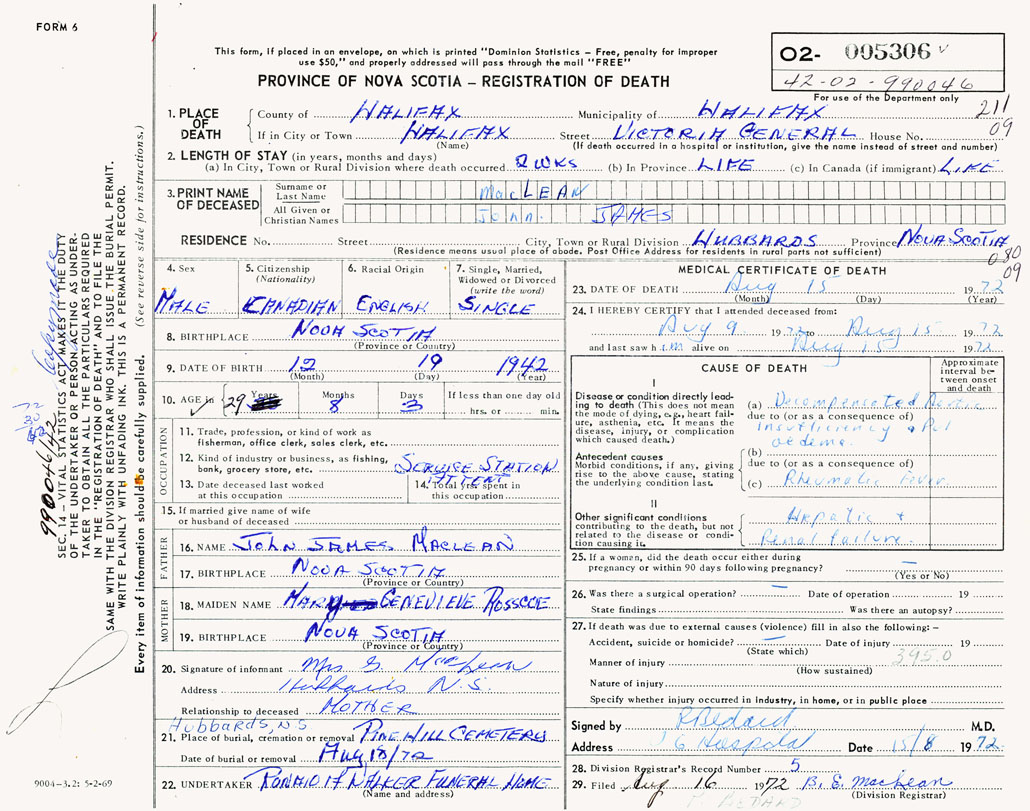 FORM 6
This form, if placed in an envelope, on which is printed "Dominion Statistics – Free, penalty for improper
use $50," and properly addressed will pass through the mail "FREE"
PROVINCE OF NOVA SCOTIA – REGISTRATION OF DEATH
02- 005306
42-02-990046
For use of the Department only
211
09
1. PLACE OF DEATH County of HALIFAX Municipality of HALIFAX
If in City or Town HALIFAX Street VICTORIA GENERAL House No.
(Name) (If death occurred in a hospital or institution, give the name instead of street and number)
2. LENGTH OF STAY (in years, months and days)
(a) In City, Town or Rural Division where death occurred 2 WKS (b) In Province LIFE (c) In Canada (if immigrant) LIFE
3. PRINT NAME OF DECEASED Surname or Last Name MacLEAN
All Given or Christian Names John JAMES
RESIDENCE No. Street City, Town or Rural Division HUBBARDS Province NOVA SCOTIA
(Residence means usual place of abode. Post Office Address for residents in rural parts not sufficient)
080
09
4. Sex 5. Citizenship (Nationality) 6. Racial Origin 7. Single, Married, Widowed or Divorced (write the word)
MALE CANADIAN ENGLISH SINGLE
8. BIRTHPLACE NOVA SCOTIA
(Province or Country)
9. DATE OF BIRTH 12 19 1942
(Month) (Day) (Year)
10. AGE in Years Months Days If less than one day old
29 8 3 hrs. or min.
OCCUPATION
11. Trade, profession, or kind of work as
fisherman, office clerk, sales clerk, etc.
12. Kind of industry or business, as fishing,
bank, grocery store, etc. SERVICE STATION
ATTENT
13. Date deceased last worked
at this occupation
14. Total years spent in
this occupation
15. If married give name of wife
or husband of deceased
FATHER
16. NAME JOHN JAMES MACLEAN
17. BIRTHPLACE NOVA SCOTIA
(Province or Country)
MOTHER
18. MAIDEN NAME MARY GENEVIEVE ROSSCOE
19. BIRTHPLACE NOVA SCOTIA
(Province or Country)
20. Signature of informant Mrs G MacLean
Address Hubbards N.S.
Relationship to deceased MOTHER
Hubbards, N.S
21. Place of burial, cremation or removal PINE HILL CEMETERY
Date of burial or removal Aug 18/72
22. UNDERTAKER RONALD A WALKER FUNERAL HOME
(Name and address)
MEDICAL CERTIFICATE OF DEATH
23. DATE OF DEATH Aug 15 1972
(Month) (Day) (Year)
24. I HEREBY CERTIFY that I attended deceased from:
Aug 9 1972 to Aug 15 1972
and last saw him alive on Aug 15 1972
CAUSE OF DEATH
Approximate interval between onset and death
I
Disease or condition directly leading to death (This does not mean the mode of dying, e.g., heart failure, asthenia, etc. It means the disease, injury, or complication which caused death.)
(a) Decompensated Aortic
due to (or as a consequence of)
Insufficiency + Pul
oedema.
Antecedent causes
Morbid conditions, if any, giving rise to the above cause, stating the underlying condition last.
(b)
due to (or as a consequence of)
(c) Rheumatic Fever
II
Other significant conditions contributing to the death, but not related to the disease or condition causing it.
Hepatic +
Renal failure.
25. If a woman, did the death occur either during
pregnancy or within 90 days following pregnancy? –
(Yes or No)
26. Was there a surgical operation? – Date of operation 19
State findings Was there an autopsy?
27. If death was due to external causes (violence) fill in also the following: –
Accident, suicide or homicide? – Date of injury 19
(State which)
395.0
Manner of injury
(How sustained)
Nature of injury
Specify whether injury occurred in industry, in home, or in public place
Signed by R Bedard M.D.
Address V G Hospital Date 15/8 1972
28. Division Registrar's Record Number 5
29. Filed Aug 16 1972 B. E. MacLean
(Division Registrar)
BEDARD
SEC. 14 – VITAL STATISTICS ACT MAKES IT THE DUTY
OF THE UNDERTAKER OR PERSON ACTING AS UNDER-
TAKER TO OBTAIN ALL THE PARTICULARS REQUIRED
IN THE "REGISTRATION OF DEATH" AND TO FILE THE
SAME WITH THE DIVISION REGISTRAR WHO SHALL ISSUE THE BURIAL PERMIT.
WRITE PLAINLY WITH UNFADING INK. THIS IS A PERMANENT RECORD.
Every item of information should be carefully supplied. (See reverse side for instructions.)
990046/42
9004-3.2: 5-2-69